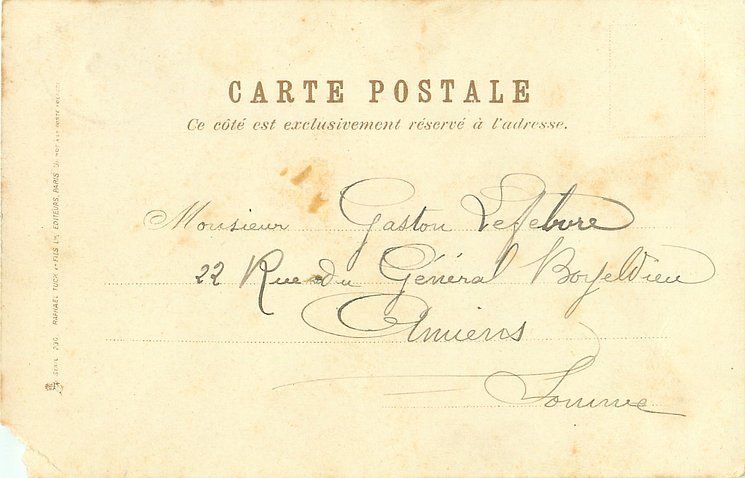 CARTE POSTALE
Ce côté est exclusivement réservé à l'adresse.
Monsieur Gaston Lefebvre
22 Rue du Général Boyeldieu
Amiens
Somme
RAPHAEL TUCK & FILS Ld. EDITEURS, PARIS